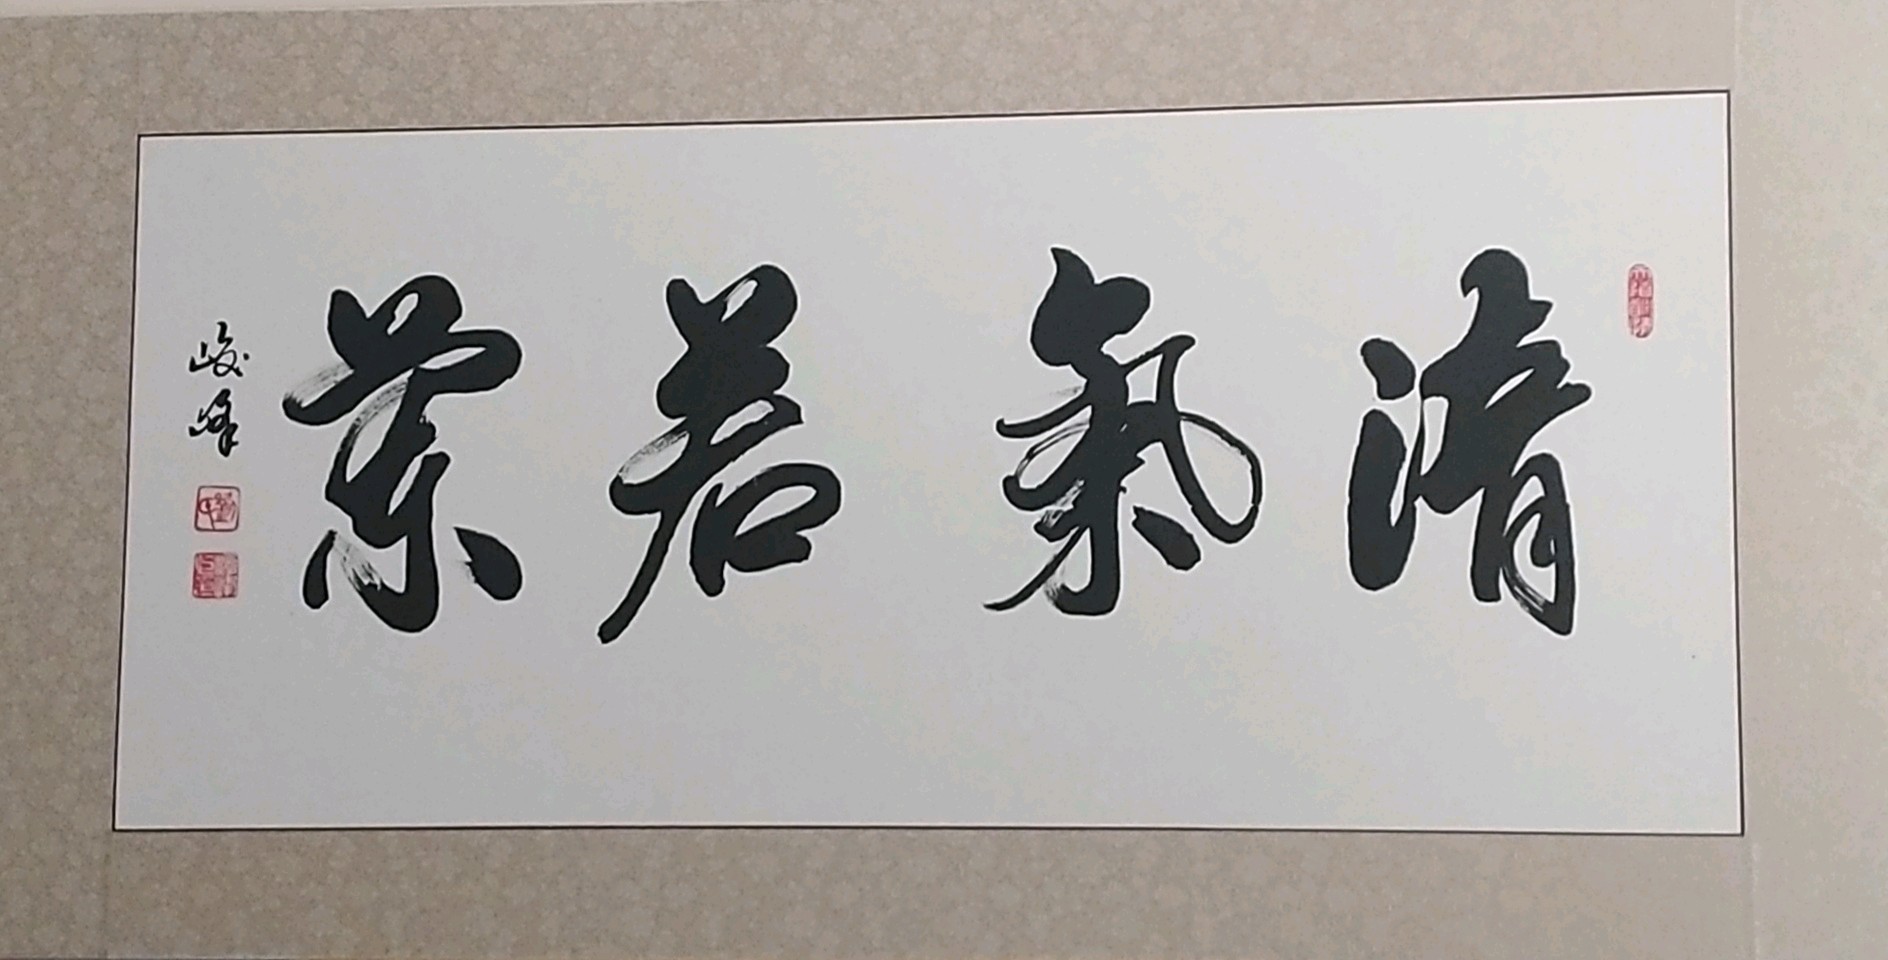 清氣若蘭
峻峰